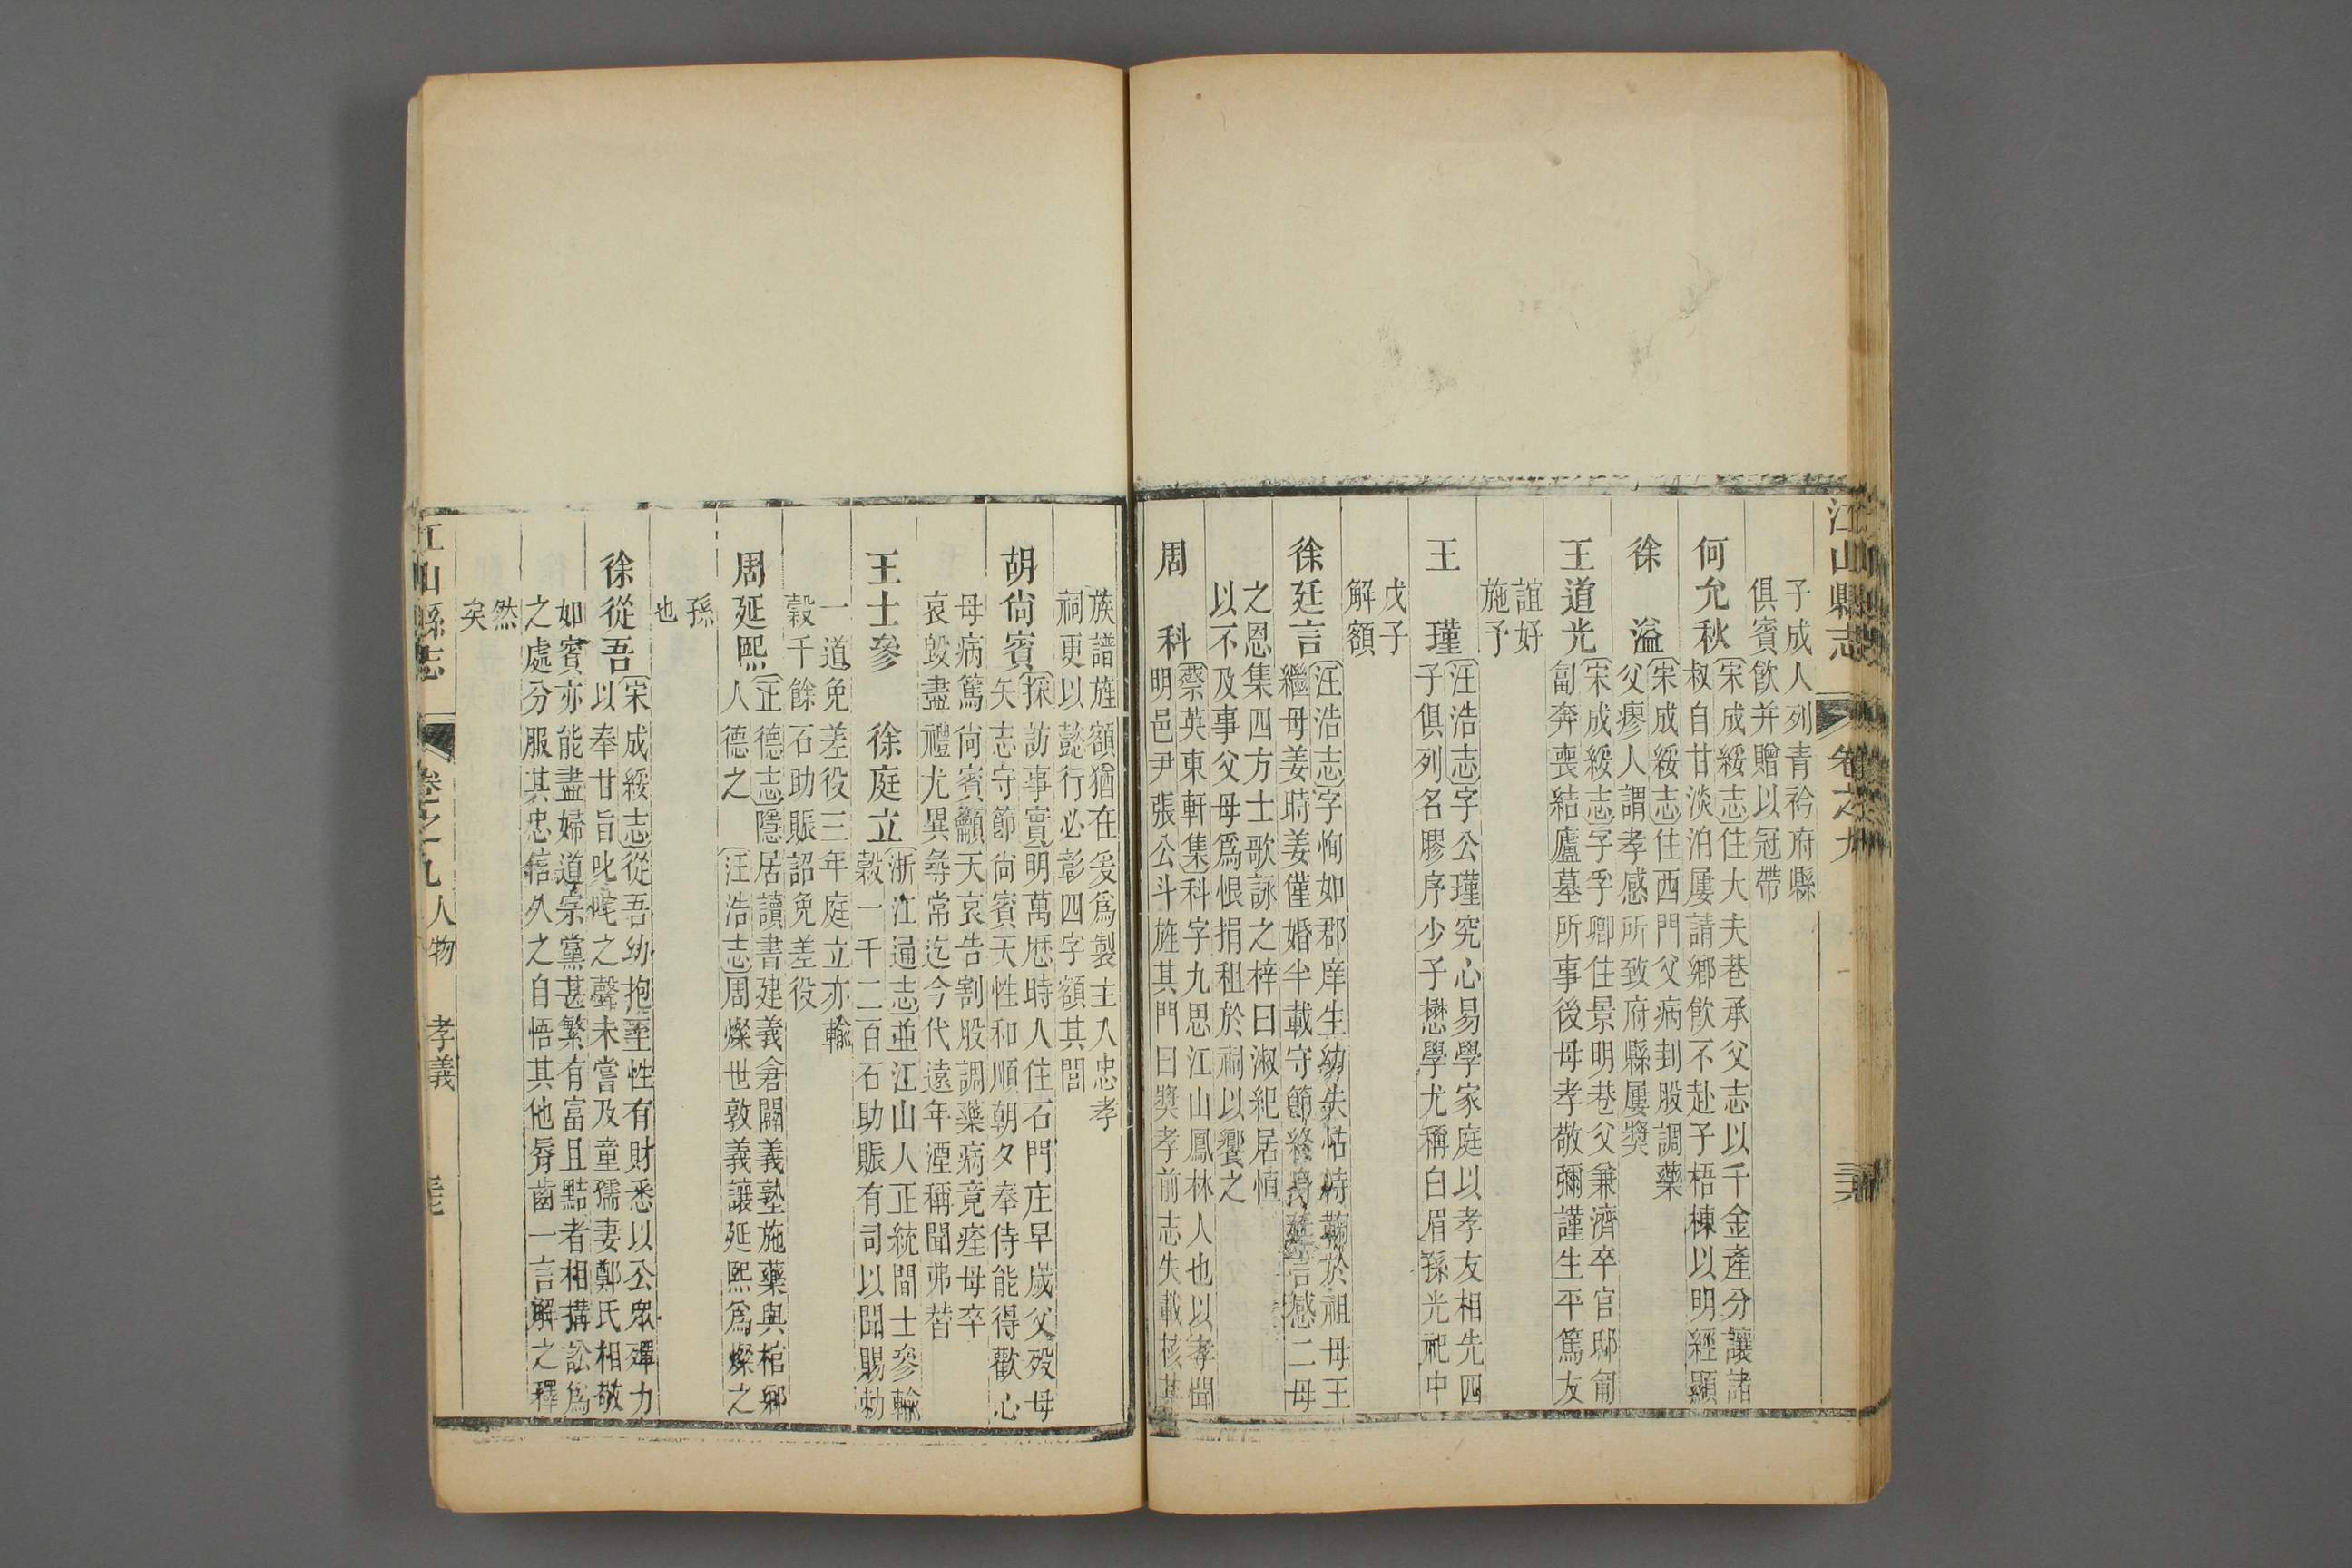 江山縣志 卷之九
子成人列青衿府縣
俱賓飮并贈以冠帶
何允秋
宋成綏志住大夫巷承父志以千金產分讓諸
叔自甘淡泊屢請鄉飮不赴子梧棟以明經顯
徐 溢
宋成綏志住西門父病刲股調藥
父瘳人謂孝感所致府縣屢獎
王道光
宋成綏志字孚卿住景明巷父兼濟卒官邸匍
匐奔喪結廬墓所事後母孝敬彌謹生平篤友
誼好
施予
王 瑾
汪浩志字公瑾究心易學家庭以孝友相先四
子俱列名膠序少子懋學尤稱白眉孫光祀中
戊子
解額
徐廷言
汪浩志字恂如郡庠生幼失怙恃鞠於祖母王
繼母姜時姜僅婚半載守節終身廷言感二母
之恩集四方士歌詠之梓曰淑紀居恒
以不及事父母爲恨捐租於祠以饗之
周 科
蔡英東軒集科字九思江山鳳林人也以孝聞
明邑尹張公斗旌其門曰獎孝前志失載核其
族譜旌額猶在爰爲製主入忠孝
祠更以懿行必彰四字額其閭
胡尙賓
採訪事實明萬厯時人住石門庄早歲父歿母
矢志守節尙賓天性和順朝夕奉侍能得歡心
母病篤尙賓籲天哀告割股調藥病竟痊母卒
哀毀盡禮尤異尋常迄今代遠年湮稱聞弗替
王士參 徐庭立
浙江通志並江山人正統間士參輸
穀一千二百石助賑有司以聞賜勅
一道免差役三年庭立亦輸
穀千餘石助賑詔免差役
周延熙
正德志隱居讀書建義倉闢義塾施藥與棺鄉
人德之 汪浩志周燦世敦義讓延熙爲燦之
孫
也
徐從吾
宋成綏志從吾幼抱至性有財悉以公眾殫力
以奉甘旨叱咤之聲未嘗及童孺妻鄭氏相敬
如賓亦能盡婦道宗黨甚繁有富且黠者相搆訟爲
之處分服其忠信久之自悟其他脣齒一言解之釋
然
矣
江山縣志 卷之九 人物 孝義